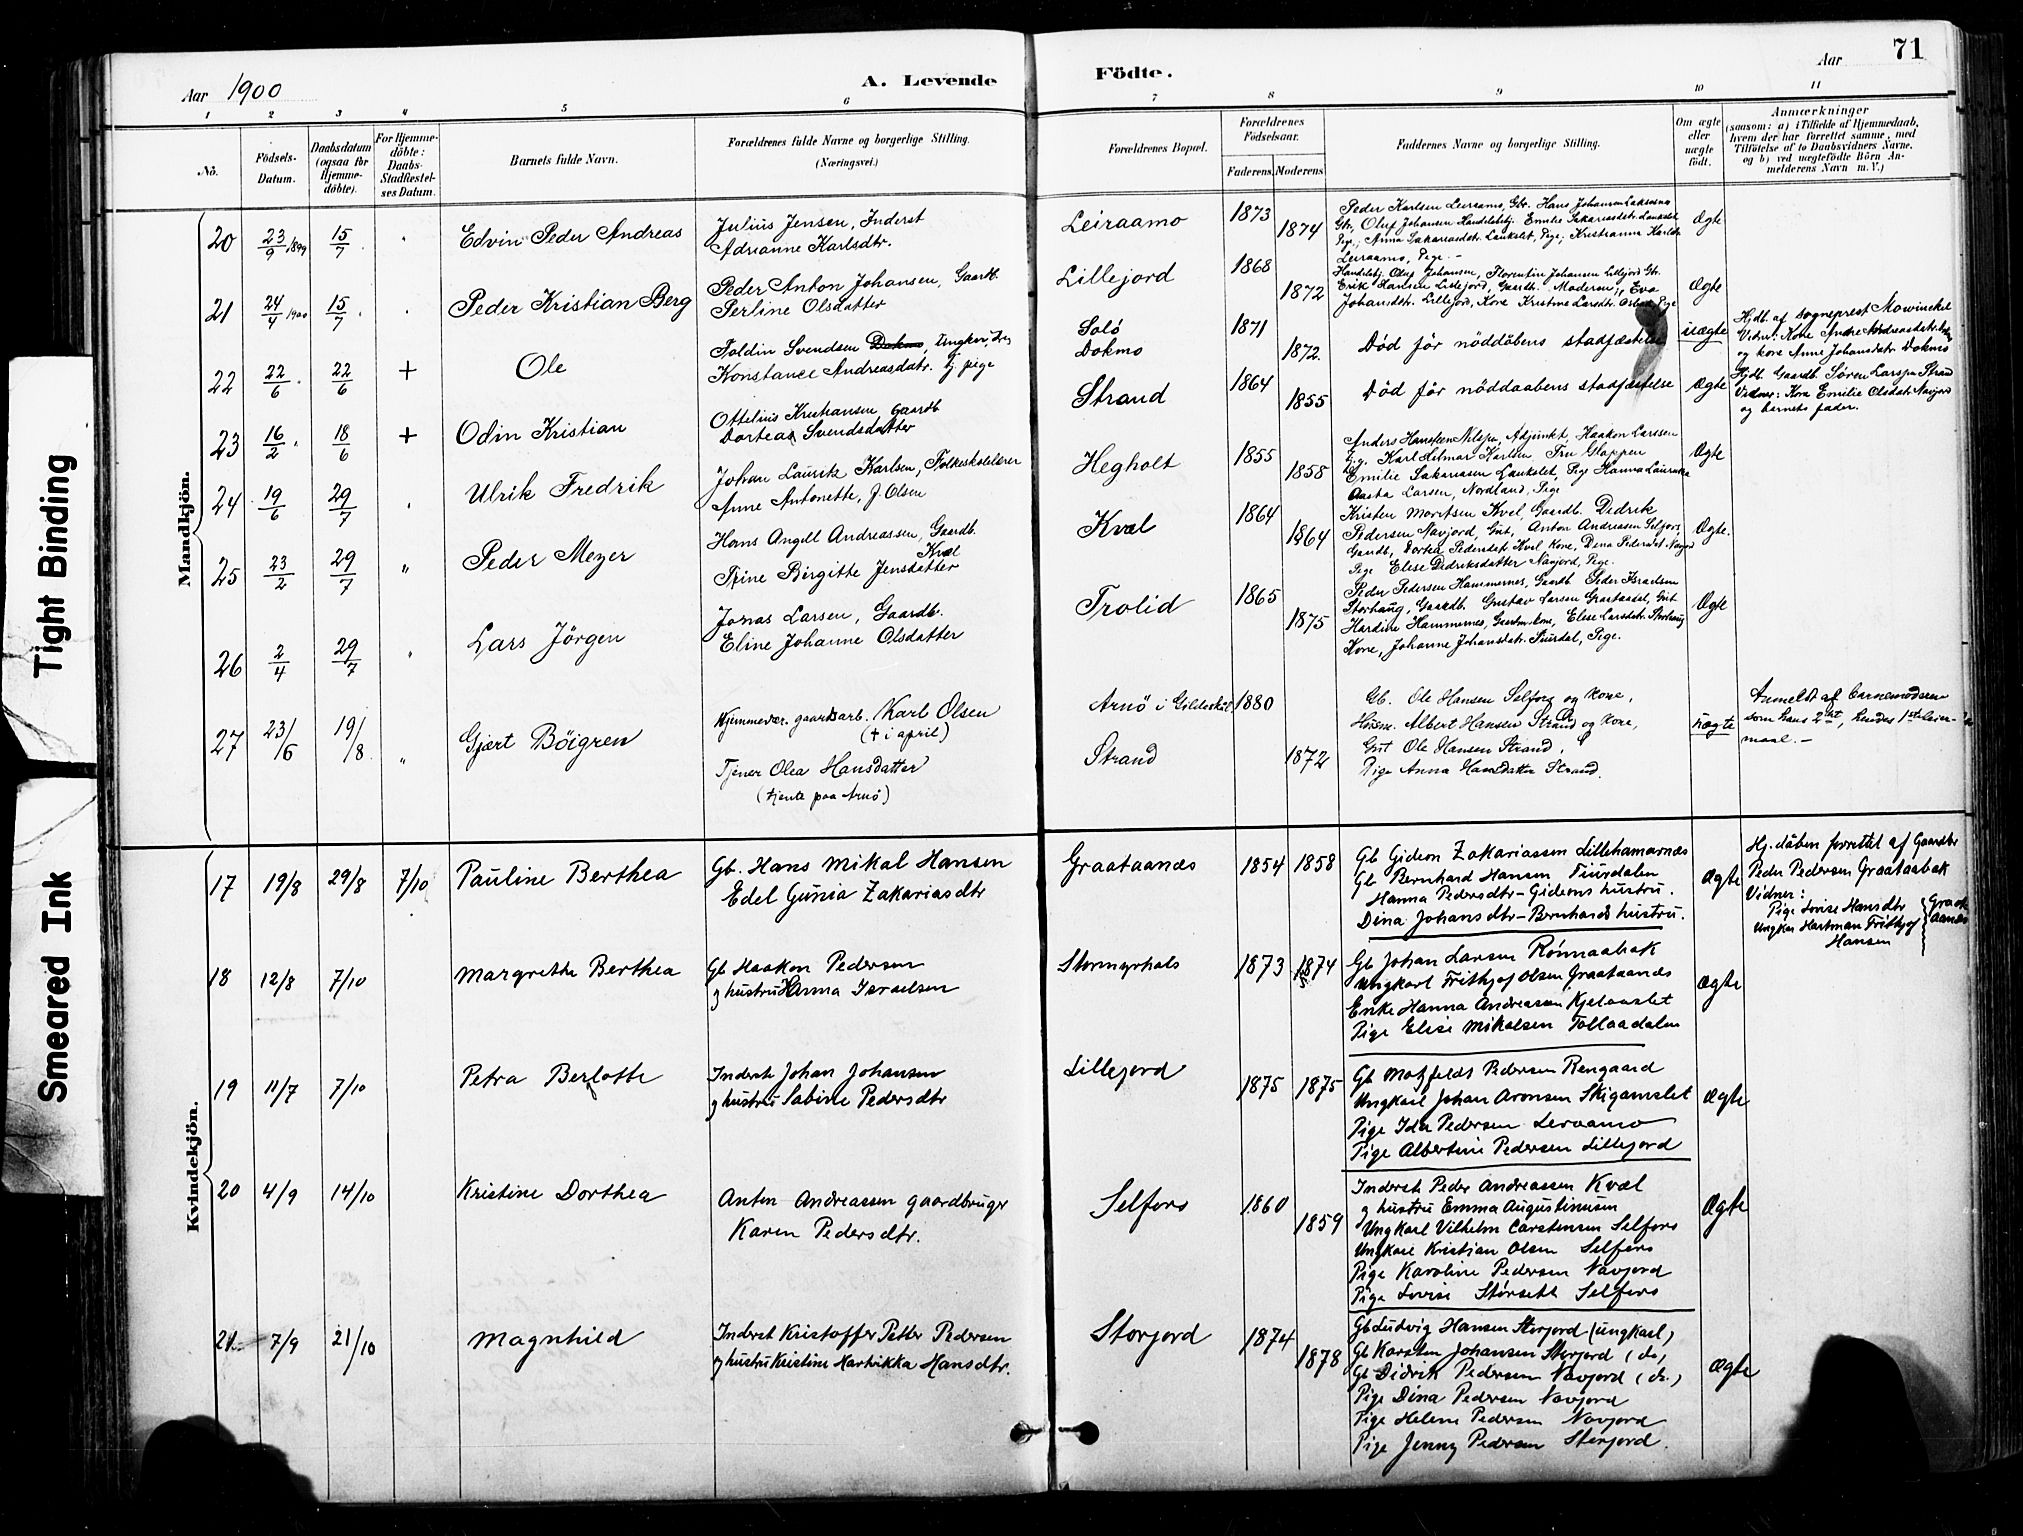 Aar 1900
A. Levende Födte.
Aar
71
1 2 3 4 5 6 7 8 9 10 11
Nô.
Födsels-Datum.
Daabsdatum (ogsaa for Hjemmedöbte).
For Hjemmedöbte: Daabs-Stadfæstelses Datum.
Barnets fulde Navn.
Forældrenes fulde Navne og borgerlige Stilling. (Næringsvei.)
Forældrenes Bopæl.
Forældrenes Födselsaar.
Faderens Moderens
Faddernes Navne og borgerlige Stilling.
Om ægte eller uægte födt.
Anmærkninger
(saasom: a) i Tilfælde af Hjemmedaab, hvem der har forrettet samme, med Tilföielse af to Daabsvidners Navne, og b) ved uægtefödte Börn Anmelderens Navn m. V.)
Tight Binding
Smeared Ink
Mandkjön.
20 23/9 1899 15/7 Edvin Peder Andreas
Julius Jensen, Inderst
Adrianne Karlsdtr.
Leiraamo 1873 1874
Peder Karlsen Leiraamo, Gbr. Hans Johansen
Gtr, Oluf Johansen Handelsbetj. Emilie Sakariasdtr. Laukslet
Pige; Anna Sakariasdtr. Laukslet, Pige; Kristianna Karlsdtr
Leiraamo, Pige.
Ægte
21 24/4 1900 15/7 Peder Kristian Berg
Peder Anton Johansen, Gaardb.
Perline Olsdatter
Lillejord 1868 1872
Handelsbtj. Oluf Johansen, Florentin Johansen Lillejord Gtr.
Erik Hansen Lillejord, Gaardb. Moderen; Eva
Johansdtr. Lillejord, Kone Kristine Larsdtr. Pige
Ægte
22 22/6 22/6 + Ole
Foldin Svendsen, Ungkar
Konstance Andreasdatr. Tj. pige
Solö
Dokmo
1871 1872.
Död för nöddöbens stadfæstelse
uægte
Hjdb. af Sogneprest Mowinckel
Vidner: Kone Andreasdatr.
og kone Anne Johansdatr. Dokmo
23 16/2 18/6 + Odin Kristian
Ottelius Kristiansen, Gaardb.
Dorteas Svendsdatter
Strand 1864 1855
Död för nöddaabens stadfæstelse
Ægte
Hjdb. Gaardb. Søren Larsen Strand
Vidner: Kone Emilie Olsdatr Navjord
og barnets fader.
24 19/6 29/7 Ulrik Fredrik
Johan Lauritz Karlsen, Folkeskolelærer
Anne Antonette, J. Olsen
Hegholt 1855 1858
Anders Hansteen Nilsen, Adjunkt, Haakon Larssen
Karl Hilmar Karlsen Fru Glappen
Emilie Sakariasen Laukslet, Pige Hanna
Aasta Larsen, Nordland, Pige
Ægte
25 23/2 29/7 " Peder Meyer
Hans Angell Andreassen, Gaardb.
Kvæl
Trine Birgitte Jensdatter
Kvæl 1864 1864
Kristen Moritsen Kvæl, Gaardb. Didrik
Pedersen Navjord, Gut, Anton Andreassen Selfors,
Gaardb, Dortea Pedersdatr Kvæl Kone, Dina Pedersdat. Navjord
Pige Elise Didriksdatter Navjord, Pige.
Ægte.
26 2/4 29/7 Lars Jörgen
Jonas Larsen, Gaardb.
Eline Johanne Olsdatter
Trolid 1865 1875
Peder Pedersen Hammernes, Gaardb. Peder Israelsen
Storhaug, Gaardb. Gustav Larsen, Gut
Hardine Hammernes, Gaardm.kone, Elise Larsdatr. Storhaug
Kone, Johanne Johansdatr., Pige.
Ægte
27 23/6 19/8 " Gjært Böigren
Hjemmevær. gaardsarb. Karl Olsen
(† i april)
Tjener Olea Hansdatter
(tjente paa Arnö)
Arnö i Gildeskål 1880
Strand 1872
Gb. Ole Hansen Selfors og kone,
Husm. Albert Hansen Strand og kone,
Gut Ole Hansen Strand,
Pige Anna Hansdatter Strand.
uægte
Anmeldt af barnemoderen
som hans 2det, hendes 1ste leier-
maal. –
Kvindekjön.
17 19/8 29/8 7/10 Pauline Berthea
Gb. Hans Mikal Hansen
Edel Gunia Zakariasdtr
Graataanæs 1854 1858
Gb Gideon Zakariassen Lillehamarnæs
Gb Bernhard Hansen Tiurdalen
Hanna Pedersdtr – Gideons hustru.
Dina Johansdtr – Bernhards hustru.
Ægte
Hj. dåben forrettet af Gaardbr
Peder Pedersen Graataabak
Vidner:
Pige Lovise Hansdtr
Ungkar Hartman Frithjof
Hansen
Graataanæs
18 12/8 7/10 Margrethe Berthea
Gb Haakon Pedersen
og hustru Hanna Israelsen
Stormyrhals 1873 1874
Gb Johan Larsen Rønnaabak
Ungkarl Frithjof Olsen Graataanæs
Enke Hanna Andreassen Kjelaaslet
Pige Elise Mikalsen Tollaadalen
Ægte
19 11/7 7/10 Petra Berlotte
Inderst Johan Johansen
og hustru Sabine Pedersdtr
Lillejord 1875 1875
Gb Motzfeldt Pedersen Rengaard
Ungkarl Johan Aronsen Skigamslet
Pige Ida Pedersen Leraamo
Pige Albertine Pedersen Lillejord
Ægte
20 4/9 14/10 Kristine Dorthea
Anton Andreassen gaardbruger
Karen Pedersdtr.
Selfors 1860 1859
Inderst Peder Andreassen Kvæl
og hustru Emma Augustinusen
Ungkarl Vilhelm Carstensen Selfors
Ungkarl Kristian Olsen Selfors
Pige Karoline Pedersen Navjord
Pige Lovise Størseth Selfors
Ægte
21 7/9 21/10 Magnhild
Inderst Kristoffer Petter Pedersen
og hustru Kristine Hartvikka Hansdtr.
Storjord 1874 1878
Gb Ludvig Hansen Storjord (ungkarl)
Gb Karsten Johansen Storjord (do)
Gb Didrik Pedersen Navjord (do.)
Pige Dina Pedersen Navjord
Pige Helene Pedersen Navjord
Pige Jenny Pedersen Storjord.
Ægte